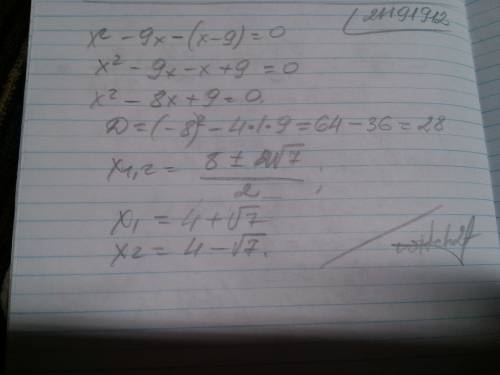 21191912
x² - 9x - (x-9) = 0
x² - 9x - x + 9 = 0
x² - 8x + 9 = 0.
D = (-8)² - 4·1·9 = 64 - 36 = 28
x₁,₂ = (8 ± 2√7)/2 ;
x₁ = 4 + √7
x₂ = 4 - √7.